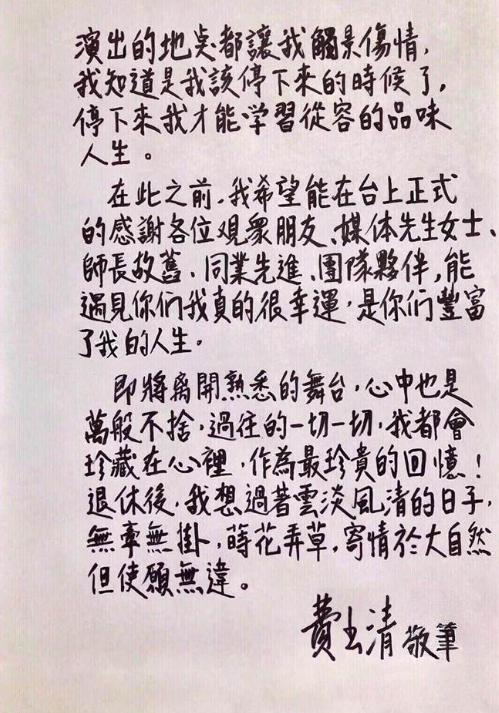 演出的地点都讓我觸景傷情，
我知道是我該停下來的時候了，
停下來我才能学習從容的品味
人生。
在此之前，我希望能在台上正式
的感謝各位观眾朋友、媒体先生女士、
師長故舊、同業先進、團隊夥伴，能
遇見你們我真的很幸運，是你們豐富
了我的人生。
即將离開熟悉的舞台，心中也是
萬般不捨，過往的一切一切，我都會
珍藏在心裡，作為最珍貴的回憶！
退休後，我想過著雲淡風清的日子，
無牽無掛，蒔花弄草，寄情於大自然
但使願無違。
費玉清 敬筆